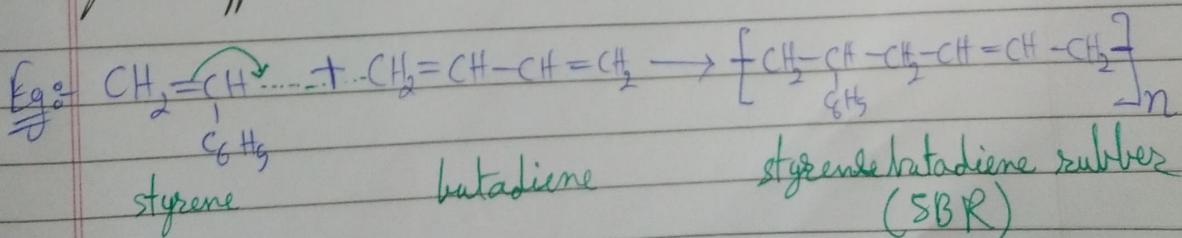 Eg:- CH₂=CH.....+..CH₂=CH-CH=CH₂ → [CH₂-CH-CH₂-CH=CH-CH₂]n
C₆H₅ C₆H₅
styrene butadiene styrene butadiene rubber
(SBR)